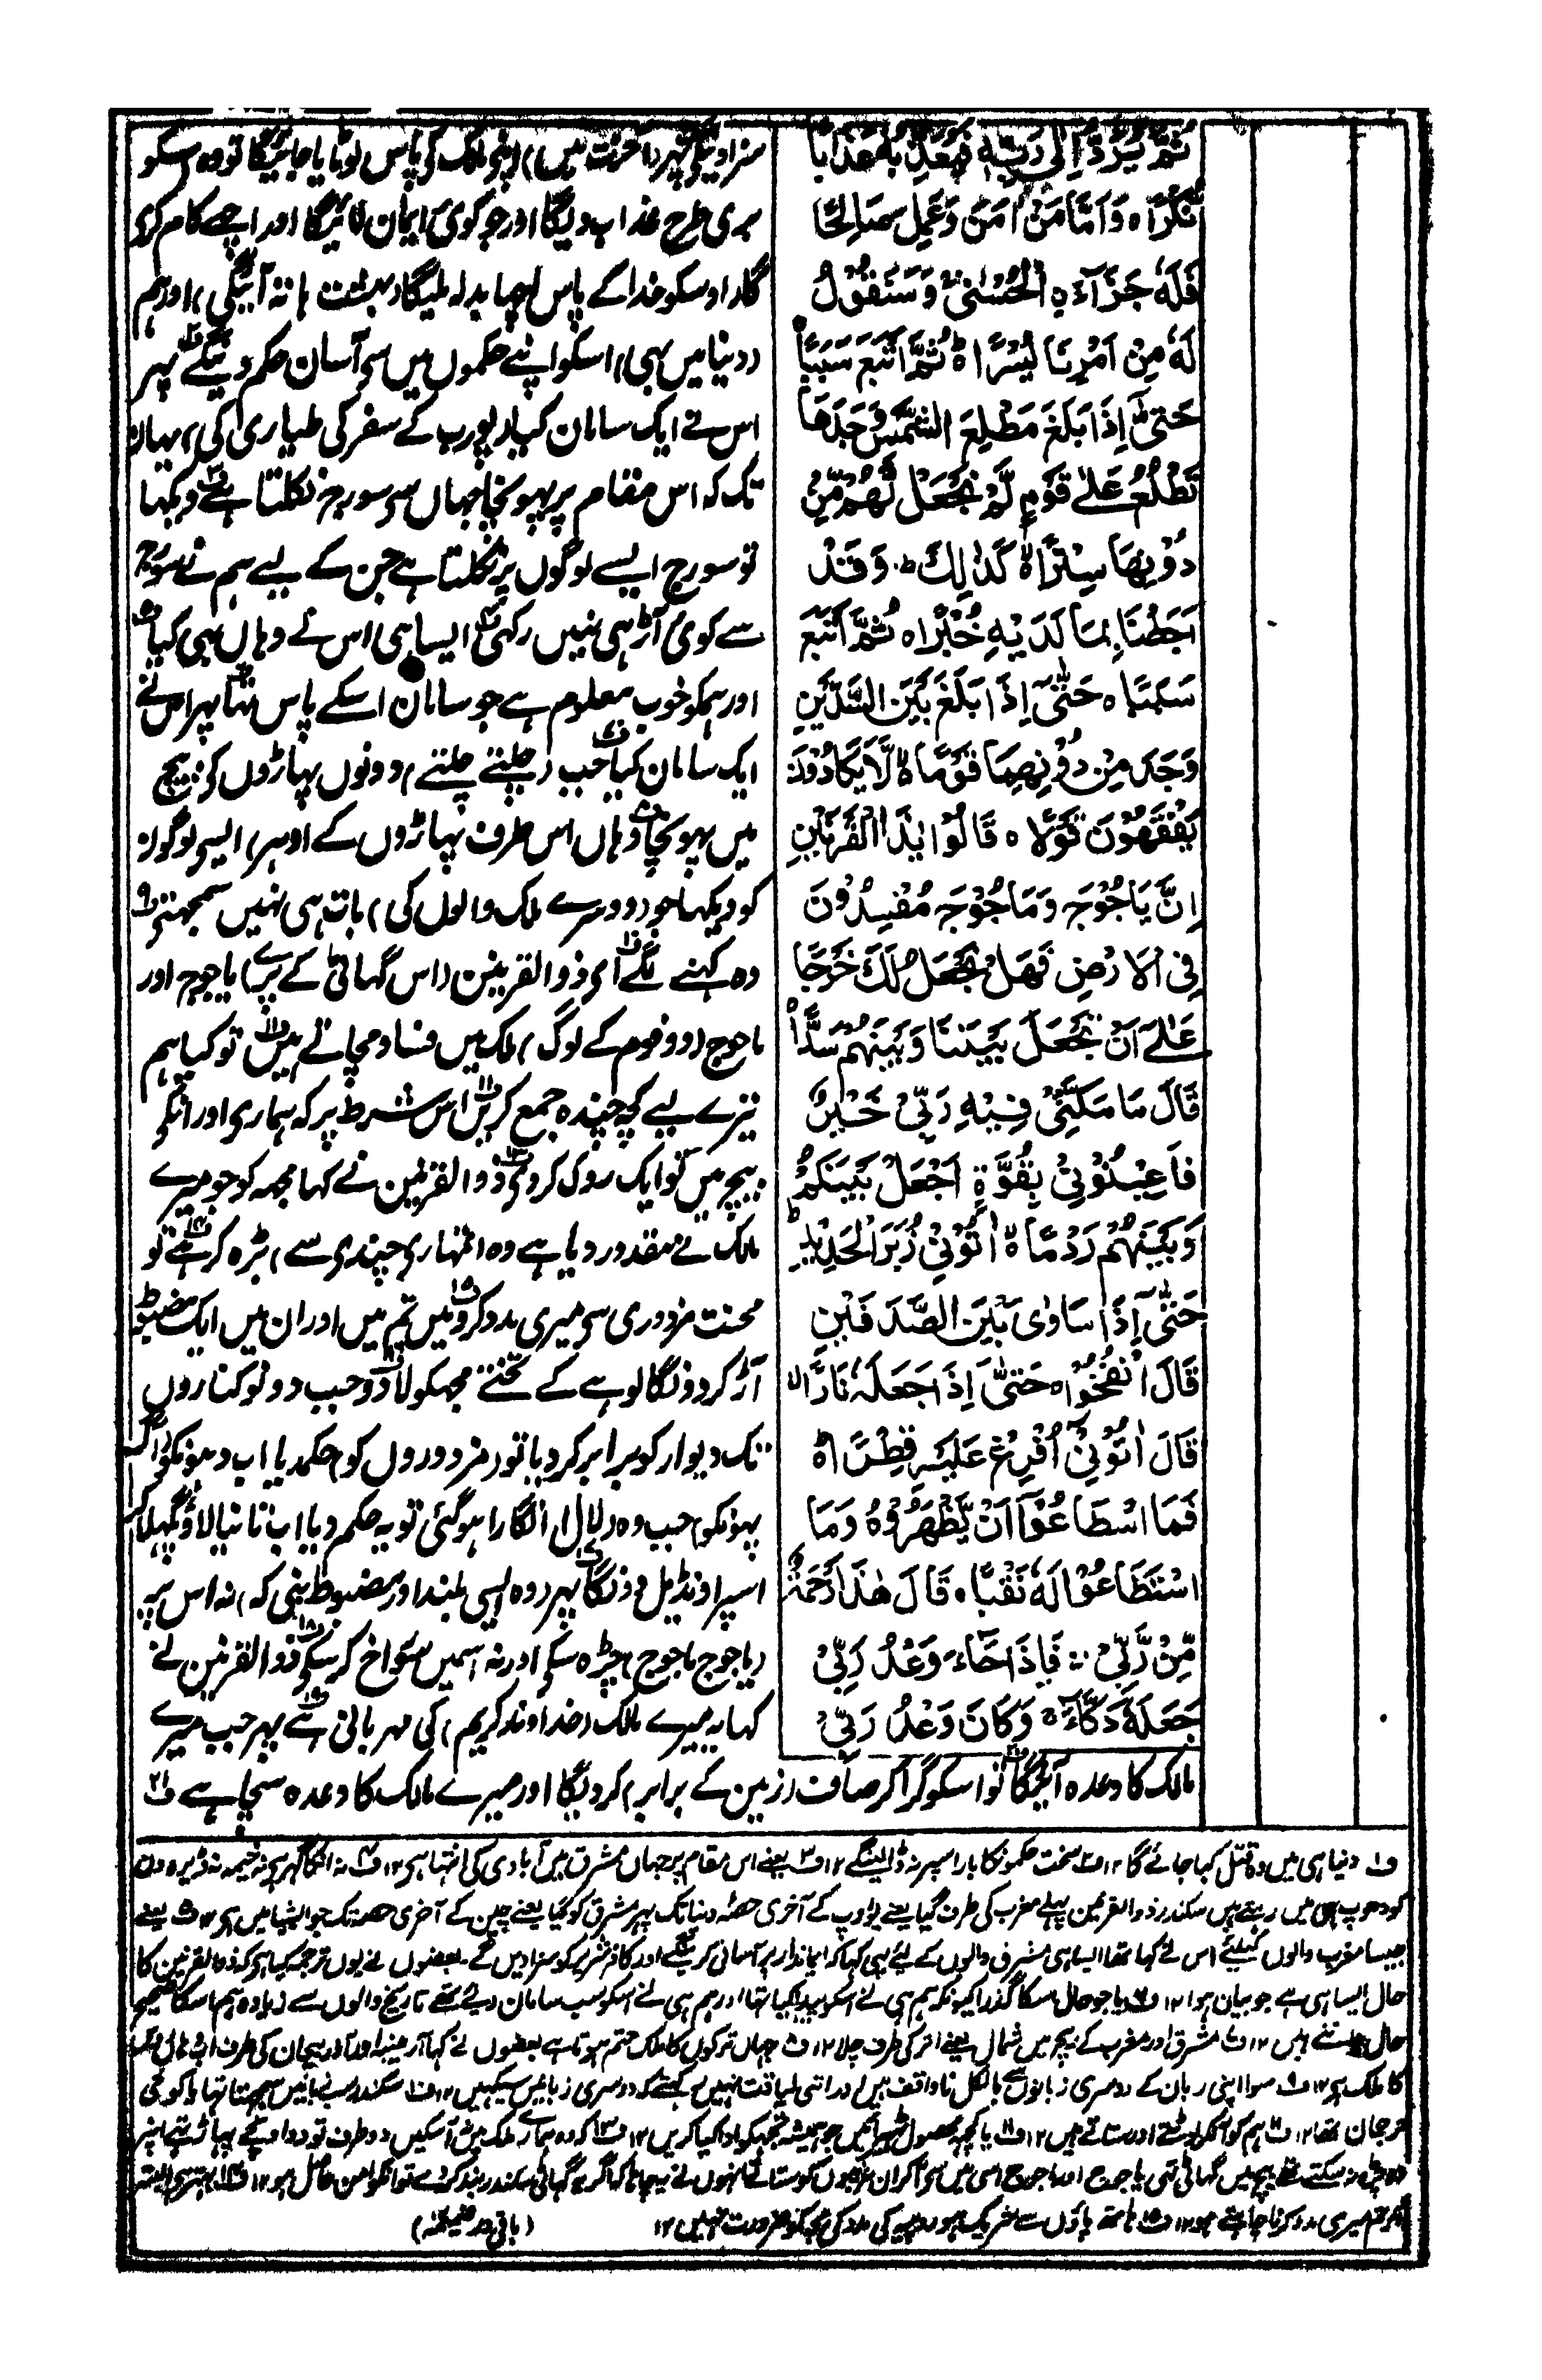 ثُمَّ يُرَدُّ اِلٰى رَبِّهٖ فَيُعَذِّبُهٗ عَذَابًا
نُّكْرًا ہ وَاَمَّا مَنْ اٰمَنَ وَعَمِلَ صَالِحًا
فَلَهٗ جَزَآءَ ۨ الْحُسْنٰى ۚ وَسَنَقُوْلُ
لَهٗ مِنْ اَمْرِنَا يُسْرًا ہ ثُمَّ اَتْبَعَ سَبَبًا
حَتّٰى اِذَا بَلَغَ مَطْلِعَ الشَّمْسِ وَجَدَهَا
تَطْلُعُ عَلٰى قَوْمٍ لَّمْ نَجْعَلْ لَّهُمْ مِّنْ
دُوْنِهَا سِتْرًا ہ كَذٰلِكَ ؕ وَقَدْ
اَحَطْنَا بِمَا لَدَيْهِ خُبْرًا ہ ثُمَّ اَتْبَعَ
سَبَبًا ہ حَتّٰى اِذَا بَلَغَ بَيْنَ السَّدَّيْنِ
وَجَدَ مِنْ دُوْنِهِمَا قَوْمًا ہ لَّا يَكَادُوْنَ
يَفْقَهُوْنَ قَوْلًا ہ قَالُوْا يٰذَا الْقَرْنَيْنِ
اِنَّ يَاْجُوْجَ وَمَاْجُوْجَ مُفْسِدُوْنَ
فِى الْاَرْضِ فَهَلْ نَجْعَلُ لَكَ خَرْجًا
عَلٰى اَنْ تَجْعَلَ بَيْنَنَا وَبَيْنَهُمْ سَدًّا
قَالَ مَا مَكَّنِّىْ فِيْهِ رَبِّىْ خَيْرٌ
فَاَعِيْنُوْنِىْ بِقُوَّةٍ اَجْعَلْ بَيْنَكُمْ
وَبَيْنَهُمْ رَدْمًا ہ اٰتُوْنِىْ زُبَرَ الْحَدِيْدِ
حَتّٰى اِذَا سَاوٰى بَيْنَ الصَّدَفَيْنِ
قَالَ انْفُخُوْا ہ حَتّٰى اِذَا جَعَلَهٗ نَارًا
قَالَ اٰتُوْنِىْ اُفْرِغْ عَلَيْهِ قِطْرًا ہ
فَمَا اسْطَاعُوْا اَنْ يَّظْهَرُوْهُ وَمَا
اسْتَطَاعُوْا لَهٗ نَقْبًا ہ قَالَ هٰذَا رَحْمَةٌ
مِّنْ رَّبِّىْ ۚ فَاِذَا جَآءَ وَعْدُ رَبِّىْ
جَعَلَهٗ دَكَّآءَ ۚ وَكَانَ وَعْدُ رَبِّىْ
سزا دینگے پھر (آخرت میں) اپنی مالک کی پاس لوٹایا جائیگا تو وہ اسکو
بری طرح عذاب دیگا اور جو کوئی ایمان لائیگا اور اچھے کام کری
گا اوسکو خدا کے پاس اچھا بدلہ ملیگا (بہشت ہاتھ آئیگی) اور ہم
(دنیا میں بہی) اسکو اپنے حکموں میں سی آسان حکم دینگے پھر
اس نے ایک سامان کیا (پورب کے سفر کی طیاری کی) یہاں
تک کہ اس مقام پر پہونچا جہاں سی سورج نکلتا ہے دیکہا
تو سورج ایسے لوگوں پر نکلتا ہے جن کے لیے ہم نے سورج
سے کوئی آڑ ہی نہیں رکہی ایسا ہی اس نے وہاں بہی کیا
اور ہمکو خوب معلوم ہے جو سامان اسکے پاس تہا پہر اس نے
ایک سامان کیا جب (چلتے چلتے) دونوں پہاڑوں کو بیچ
میں پہونچا وہاں اس طرف پہاڑوں کے اوہر ایسی لوگوں
کو دیکہا جو (دوسرے ملک والوں کی) بات ہی نہیں سمجہتے
وہ کہنے لگے ای ذوالقرنین (اس گہاٹی کے پرے) یاجوج اور
ماجوج (دو قوم کے لوگ) ملک میں فساد مچاتے ہیں تو کیا ہم
تیرے لیے کچہ چندہ جمع کریں اس شرط پر کہ ہماری اور انکو
بیچ میں تو ایک روک کر دی ذوالقرنین نے کہا مجہہ کو جو میرے
مالک نے مقدور دیا ہے وہ (تمہاری چندی سے) بڑہ کر ہے تو
محنت مزدوری سی میری مدد کرو میں تم میں اور ان میں ایک مضبوط
آڑ کر دونگا لوہے کے تختے مجہکو لا دو جب دونو کناروں
تک دیوار کو برابر کر دیا تو (مزدوروں کو) حکم دیا اب دہونکو (آگ
پہونکو) جب وہ (لال) انگارا ہو گئی تو یہ حکم دیا اب تانبا لاؤ پگہلا کر
اسپر اونڈیل دونگا پہر (وہ ایسی بلند اور مضبوط بنی کہ) نہ اس پہ
(یاجوج ماجوج) چڑہ سکی اور نہ اسمیں سوراخ کر سکی ذوالقرنین نے
کہا یہ میرے مالک (خداوند کریم) کی مہربانی ہے پہر جب میرے
مالک کا وعدہ آئیگا تو اسکو گرا کر صاف (زمین کے برابر) کر دیگا اور میرے مالک کا وعدہ سچا ہے ف۲۱
ف۱ دنیا ہی میں وہ قتل کیا جائے گا ۱۲ ف۲ سخت حکمونکا بار اسپر نہ ڈالینگے ۱۲ ف۳ یعنے اس مقام پر جہاں مشرق میں آبادی کی انتہا ہی ۱۲ ف۴ نہ انکا گہر ہی نہ خیمہ نہ ڈیرہ
کو دہوپ ہی میں رہتے ہیں سکندر ذوالقرنین پہلے مغرب کی طرف گیا یعنے یورپ کے آخری حصہ دنیا تک پہر مشرق کو گیا یعنے چین کے آخری حصہ تک جو ایشیا میں ہی ۱۲ ف۵ یعنے
جیسا مغرب والوں کیلئے اس نے کہا تہا ایسا ہی مشرق والوں کے لیے بہی کہا کہ ایماندار پر آسانی کرینگے اور کافر شریر کو سزا دیں گے بعضوں نے یوں ترجمہ کیا ہی کہ ذوالقرنین کا
حال ایسا ہی ہے جو بیان ہوا ۱۲ ف۶ یا جو حال اسکا گذرا کیونکہ ہم ہی نے اسکو پیدا کیا تہا اور ہم ہی نے اسکو سب سامان دیے تہے تاریخ والوں سے زیادہ ہم اسکا صحیح
حال جانتے ہیں ۱۲ ف۷ مشرق اور مغرب کے بیچ میں شمال یعنے اتر کی طرف چلا ۱۲ ف۸ جہاں ترکوں کا ملک ختم ہوتا ہے بعضوں نے کہا آرمینیہ اور آذربیجان کی طرف
کا ملک ہی ۱۲ ف۹ سوا اپنی زبان کے دوسری زبانوں سے بالکل ناواقف ہیں اور اتنی لیاقت نہیں رکہتے کہ دوسری زبانیں سیکہیں ۱۲ ف۱۰ سکندر سب زبانیں سمجہتا تہا یا کوئی
ترجمان تہا ۱۲ ف۱۱ ہم کو آنکر لوٹتے اور ستاتے ہیں ۱۲ ف۱۲ یا کچہ محصول ٹہیرائیں جو ہمیشہ تجہکو ادا کیا کریں ۱۲ ف۱۳ کہ وہ ہمارے ملک میں نہ آسکیں دو طرف تو دو اونچے پہاڑ تہے
نہ سکتے تہے بیچ میں گہاٹی تہی یاجوج اور ماجوج اسی میں سی آکر ان غریبوں کو ستاتے انہوں نے یہ چاہا کہ اگر یہ گہاٹی سکندر بند کر دے تو انکو امن حاصل ہو ۱۲ ف۱۴
اگر تم میری مدد کرنا چاہتے ہو ۱۲ ف۱۵ ہاتہہ پاؤں سے شریک ہو روپیہ کی مدد کی مجہکو ضرورت نہیں ۱۲ (باقی در ضمیمہ)